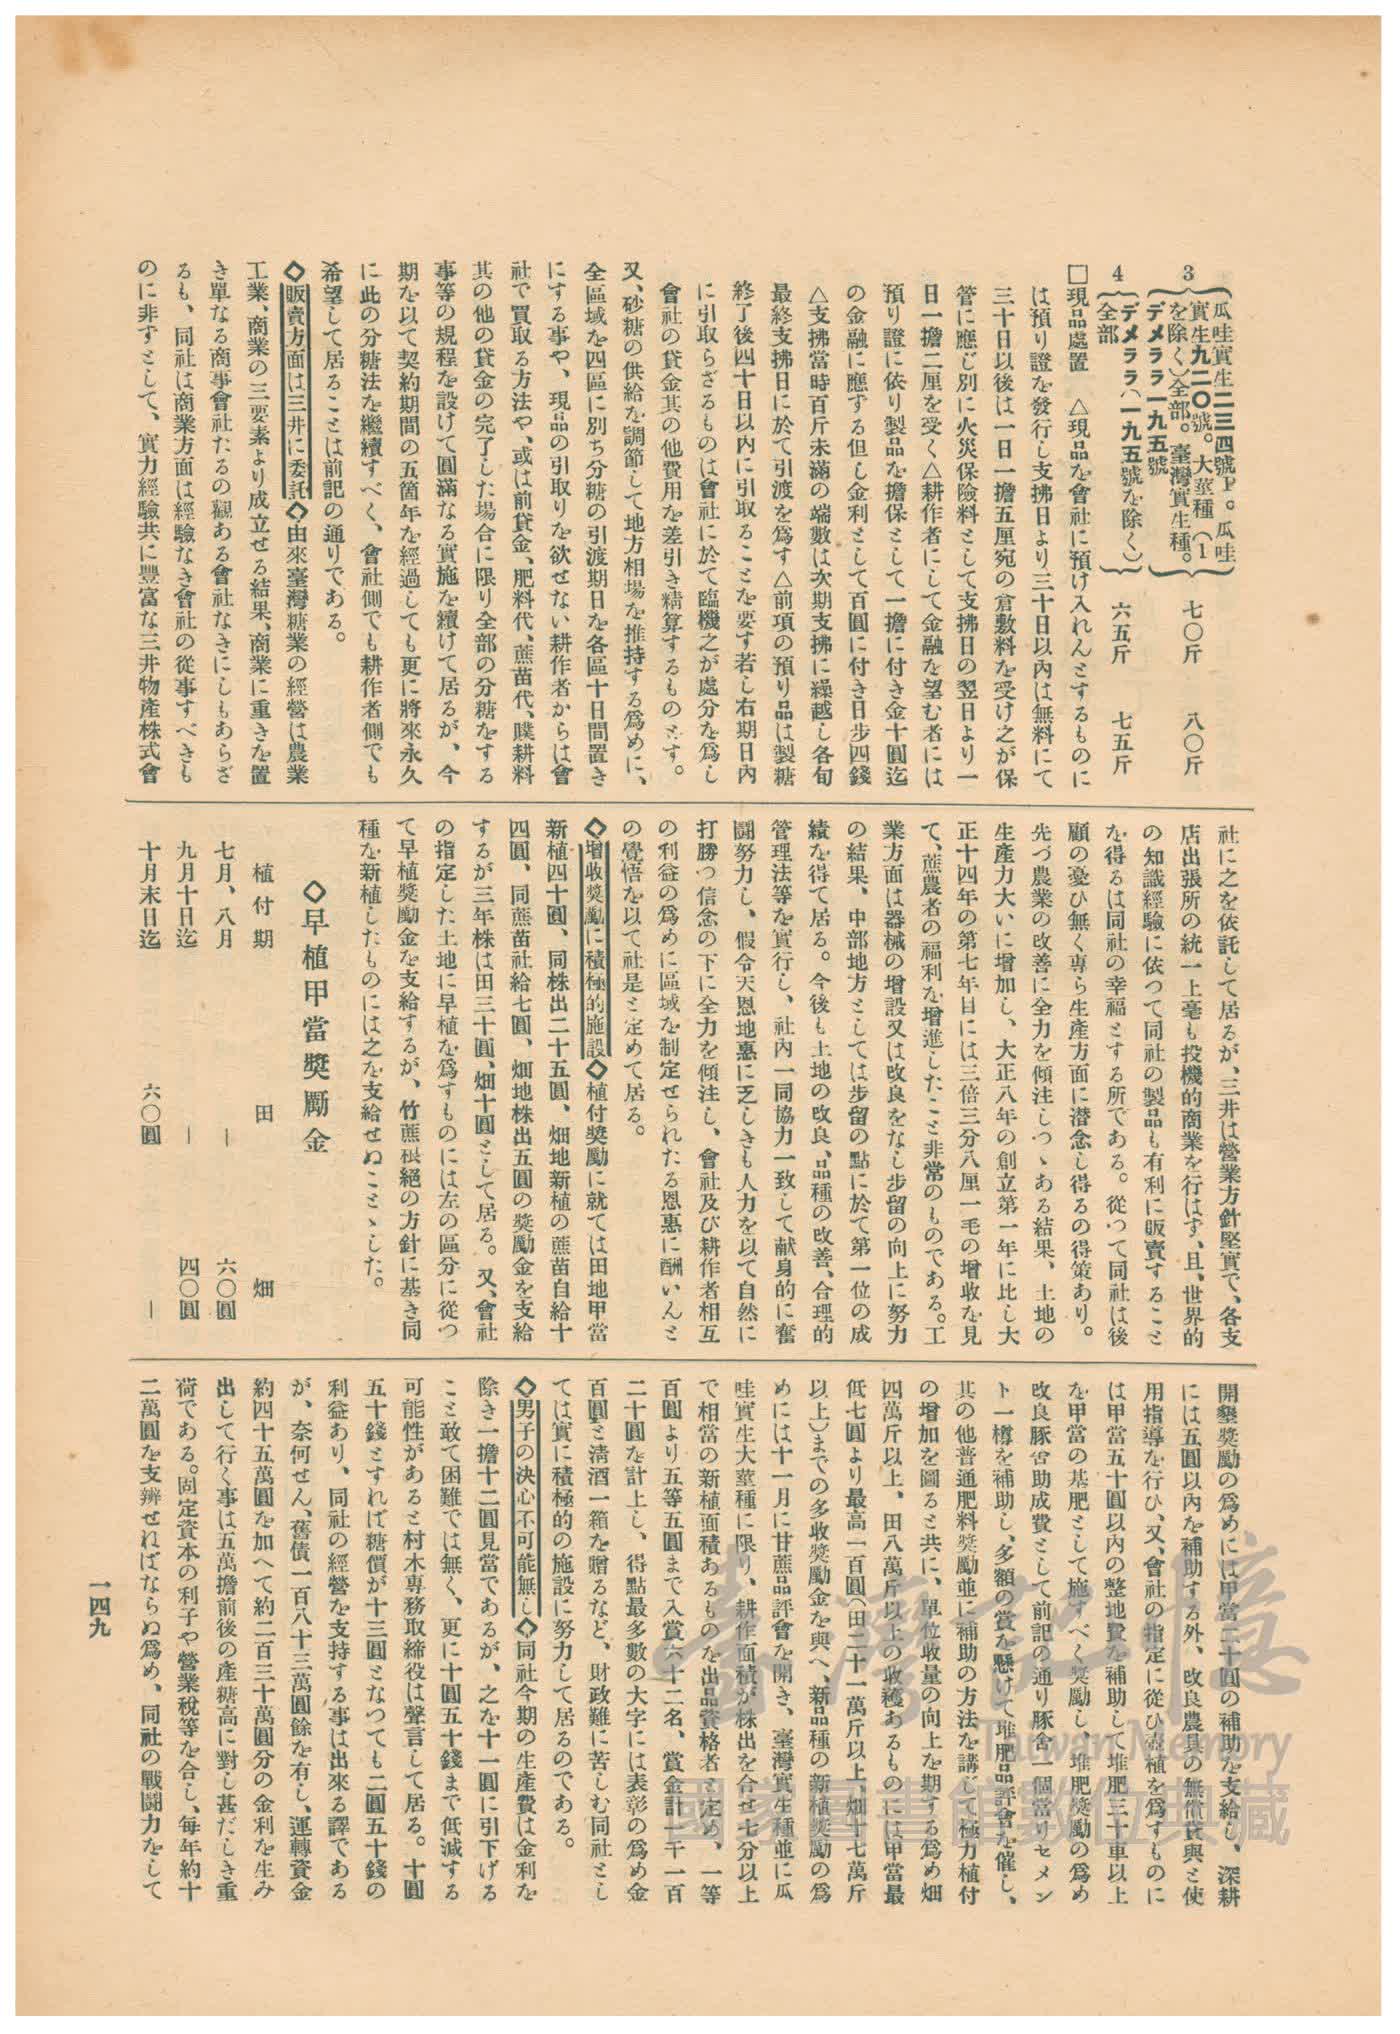 3
瓜哇實生二三四號P。瓜哇
實生九二〇號。大莖種(1
を除く)全部。臺灣實生種。
デメララ一九五號
七〇斤 八〇斤
4
デメララ(一九五號を除く)
全部
六五斤 七五斤
□現品處置 △現品を會社に預け入れんとするものに
は預り證を發行し支拂日より三十日以内は無料にて
三十日以後は一日一擔五厘宛の倉敷料を受け之が保
管に應じ別に火災保險料として支拂日の翌日より一
日一擔二厘を受く△耕作者にして金融を望む者には
預り證に依り製品を擔保として一擔に付き金十圓迄
の金融に應ずる但し金利として百圓に付き日步四錢
△支拂當時百斤未滿の端數は次期支拂に繰越し各旬
最終支拂日に於て引渡を爲す△前項の預り品は製糖
終了後四十日以内に引取ることを要す若し右期日内
に引取らざるものは會社に於て臨機之が處分を爲し
會社の貸金其の他費用を差引き精算するものとす。
又、砂糖の供給を調節して地方相場を推持する爲めに、
全區域を四區に別ち分糖の引渡期日を各區十日間置き
にする事や、現品の引取りを欲せない耕作者からは會
社で買取る方法や、或は前貸金、肥料代、蔗苗代、贌耕料
其の他の貸金の完了した場合に限り全部の分糖をする
事等の規程を設けて圓滿なる實施を續けて居るが、今
期を以て契約期間の五箇年を經過しても更に將來永久
に此の分糖法を繼續すべく、會社側でも耕作者側でも
希望して居ることは前記の通りである。
◇販賣方面は三井に委託◇由來臺灣糖業の經營は農業
工業、商業の三要素より成立せる結果、商業に重きを置
き單なる商事會社たるの觀ある會社なきにしもあらざ
るも、同社は商業方面は經驗なき會社の從事すべきも
のに非ずとして、實力經驗共に豐富な三井物產株式會
社に之を依託して居るが、三井は營業方針堅實で、各支
店出張所の統一上毫も投機的商業を行はず、且、世界的
の知識經驗に依つて同社の製品も有利に販賣すること
を得るは同社の幸福とする所である。從つて同社は後
顧の憂ひ無く專ら生產方面に潜念し得るの得策あり。
先づ農業の改善に全力を傾注しつゝある結果、土地の
生產力大いに增加し、大正八年の創立第一年に比し大
正十四年の第七年目には三倍三分八厘一毛の增收を見
て、蔗農者の福利を增進したこと非常のものである。工
業方面は器械の增設又は改良をなし步留の向上に努力
の結果、中部地方としては步留の點に於て第一位の成
績を得て居る。今後も土地の改良、品種の改善、合理的
管理法等を實行し、社内一同協力一致して献身的に奮
鬪努力し、假令天恩地惠に乏しきも人力を以て自然に
打勝つ信念の下に全力を傾注し、會社及び耕作者相互
の利益の爲めに區域を制定せられたる恩惠に酬いんと
の覺悟を以て社是と定めて居る。
◇增收奬勵に積極的施設◇植付奬勵に就ては田地甲當
新植四十圓、同株出二十五圓、畑地新植の蔗苗自給十
四圓、同蔗苗社給七圓、畑地株出五圓の奬勵金を支給
するが三年株は田三十圓、畑十圓として居る。又、會社
の指定した土地に早植を爲すものには左の區分に從つ
て早植奬勵金を支給するが、竹蔗根絕の方針に基き同
種を新植したものには之を支給せぬことゝした。
◇早植甲當奬勵金
植付期 田 畑
七月、八月 — 六〇圓
九月十日迄 — 四〇圓
十月末日迄 六〇圓 —
開墾奬勵の爲めには甲當二十圓の補助を支給し、深耕
には五圓以内を補助する外、改良農具の無償貸與と使
用指導を行ひ、又、會社の指定に從ひ壺植を爲すものに
は甲當五十圓以内の整地費を補助して堆肥三十車以上
を甲當の基肥として施すべく奬勵し、堆肥奬勵の爲め
改良豚舍助成費として前記の通り豚舍一個當りセメン
ト一樽を補助し、多額の賞を懸けて堆肥品評會を催し、
其の他普通肥料奬勵並に補助の方法を講じて極力植付
の增加を圖ると共に、單位收量の向上を期する爲め畑
四萬斤以上、田八萬斤以上の收穫あるものには甲當最
低七圓より最高一百圓(田二十一萬斤以上、畑十七萬斤
以上)までの多收奬勵金を與へ、新品種の新植奬勵の爲
めには十一月に甘蔗品評會を開き、臺灣實生種並に瓜
哇實生大莖種に限り、耕作面積が株出を合せ七分以上
で相當の新植面積あるものを出品資格者と定め、一等
百圓より五等五圓まで入賞六十二名、賞金計一千一百
二十圓を計上し、得點最多數の大字には表彰の爲め金
百圓と淸酒一箱を贈るなど、財政難に苦しむ同社とし
ては實に積極的の施設に努力して居るのである。
◇男子の決心不可能無し◇同社今期の生產費は金利を
除き一擔十二圓見當であるが、之を十一圓に引下げる
こと敢て困難では無く、更に十圓五十錢まで低減する
可能性があると村木專務取締役は聲言して居る。十圓
五十錢とすれば糖價が十三圓となつても二圓五十錢の
利益あり、同社の經營を支持する事は出來る譯である
が、奈何せん、舊債一百八十三萬圓餘を有し、運轉資金
約四十五萬圓を加へて約二百三十萬圓分の金利を生み
出して行く事は五萬擔前後の產糖高に對し甚だしき重
荷である。固定資本の利子や營業稅等を合し、每年約十
二萬圓を支辨せねばならぬ爲め、同社の戰鬪力をして
一四九
臺灣記憶
Taiwan Memory
國家圖書館數位典藏